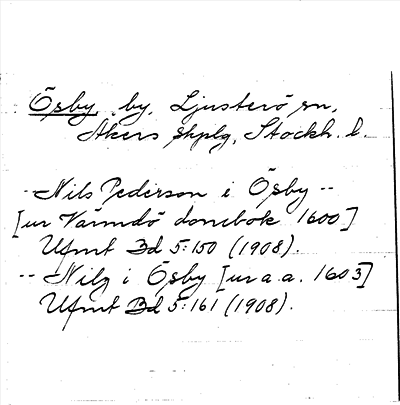 Ösby, by, Ljusterö sn,
Åkers skplg, Stockh. l.
-- Nils Pederson i Ösby --
[ur Värmdö dombok 1600]
Ufmt Bd 5:150 (1908).
-- Nilz i Ösby [ur a.a. 1603]
Ufmt Bd 5:161 (1908).